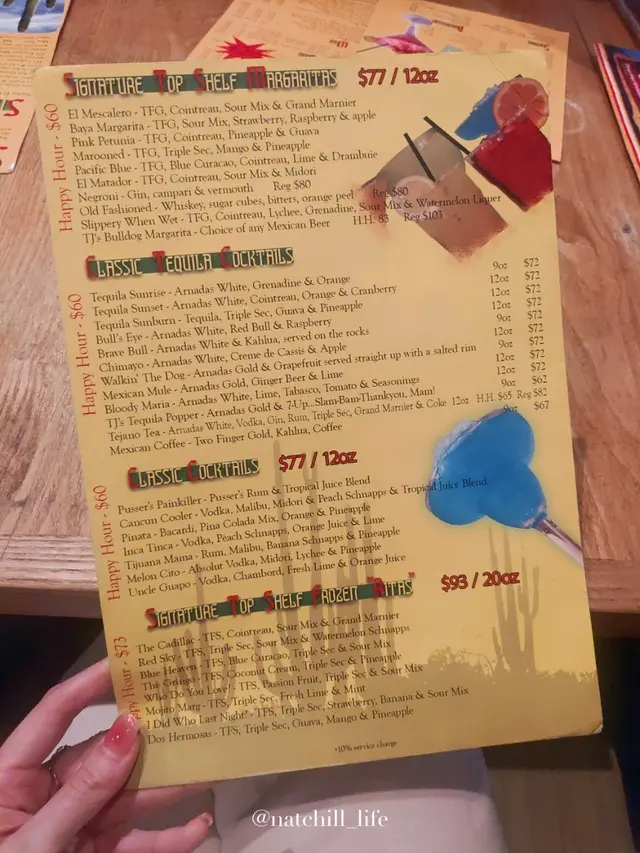 SIGNATURE TOP SHELF MARGARITAS $77 / 12oz
Happy Hour - $60
El Mescalero - TFG, Cointreau, Sour Mix & Grand Marnier
Baya Margarita - TFG, Sour Mix, Strawberry, Raspberry & apple
Pink Petunia - TFG, Cointreau, Pineapple & Guava
Marooned - TFG, Triple Sec, Mango & Pineapple
Pacific Blue - TFG, Blue Curacao, Cointreau, Lime & Drambuie
El Matador - TFG, Cointreau, Sour Mix & Midori
Negroni - Gin, campari & vermouth Reg $80
Old Fashioned - Whiskey, sugar cubes, bitters, orange peel Reg $80
Slippery When Wet - TFG, Cointreau, Lychee, Grenadine, Sour Mix & Watermelon Liquer
TJ's Bulldog Margarita - Choice of any Mexican Beer H.H. 83 Reg $103
CLASSIC TEQUILA COCKTAILS
Happy Hour - $60
Tequila Sunrise - Arnadas White, Grenadine & Orange 9oz $72
Tequila Sunset - Arnadas White, Cointreau, Orange & Cranberry 12oz $72
Tequila Sunburn - Tequila, Triple Sec, Guava & Pineapple 12oz $72
Bull's Eye - Arnadas White, Red Bull & Raspberry 12oz $72
Brave Bull - Arnadas White & Kahlua, served on the rocks 9oz $72
Chimayo - Arnadas White, Creme de Cassis & Apple 12oz $72
Walkin' The Dog - Arnadas Gold & Grapefruit served straight up with a salted rim 9oz $72
Mexican Mule - Arnadas Gold, Ginger Beer & Lime 12oz $72
Bloody Maria - Arnadas White, Lime, Tabasco, Tomato & Seasonings 12oz $72
TJ's Tequila Popper - Arnadas Gold & 7-Up...Slam-Bam-Thankyou, Mam! 9oz $62
Tejano Tea - Arnadas White, Vodka, Gin, Rum, Triple Sec, Grand Marnier & Coke 12oz H.H. $65 Reg $82
Mexican Coffee - Two Finger Gold, Kahlua, Coffee 9oz $67
CLASSIC COCKTAILS $77 / 12oz
Happy Hour - $60
Pusser's Painkiller - Pusser's Rum & Tropical Juice Blend
Cancun Cooler - Vodka, Malibu, Midori & Peach Schnapps & Tropical Juice Blend
Pinata - Bacardi, Pina Colada Mix, Orange & Pineapple
Inca Tinca - Vodka, Peach Schnapps, Orange Juice & Lime
Tijuana Mama - Rum, Malibu, Banana Schnapps & Pineapple
Melon Cito - Absolut Vodka, Midori, Lychee & Pineapple
Uncle Guapo - Vodka, Chambord, Fresh Lime & Orange Juice
SIGNATURE TOP SHELF FROZEN "RITAS" $93 / 20oz
py Hour - $73
The Cadillac - TFS, Cointreau, Sour Mix & Grand Marnier
Red Sky - TFS, Triple Sec, Sour Mix & Watermelon Schnapps
Blue Heaven - TFS, Blue Curacao, Triple Sec & Sour Mix
The Gringo - TFS, Coconut Cream, Triple Sec & Pineapple
Who Do You Love - TFS, Passion Fruit, Triple Sec & Sour Mix
Mojito Marg - TFS, Triple Sec, Fresh Lime & Mint
I Did Who Last Night? - TFS, Triple Sec, Strawberry, Banana & Sour Mix
Dos Hermosas - TFS, Triple Sec, Guava, Mango & Pineapple
+10% service charge
@natchill_life